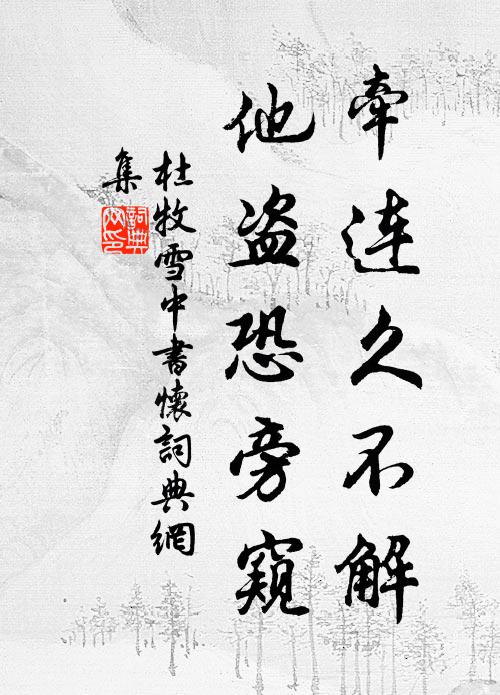 牵连久不解
他盗恐旁窥
杜牧雪中書懷詞典網
集
詞典网印